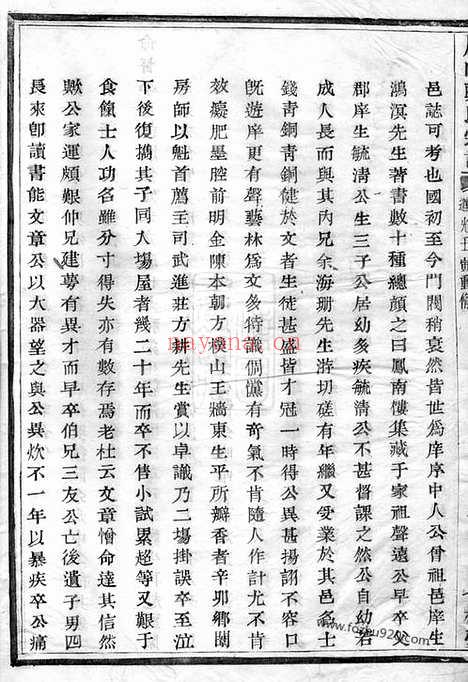 邑誌可考也國初至今門閥稍衰然皆世爲庠序中人公曾祖邑庠生
鴻溟先生著書數十種總顏之曰鳳南慺集藏于家祖聲遠公早卒父
郡庠生毓淸公生三子公居幼多疾毓淸公不甚督課之然公自幼若
成人長而與内兄余海珊先生游切磋有年繼又受業於其邑名士
錢靑銅靑銅健於文者生徒甚盛皆才冠一時得公異甚揚詡不容口
旣遊庠更有聲藝林爲文多特識倜儻有奇氣不肯隨人作計尤不肯
效癡肥墨腔前明金陳本朝方樸山王牆東生平所瓣香者辛卯鄕闈
房師以魁首薦主司武進莊方耕先生賞以卓識乃二場掛誤卒至泣
下後復擕其子同入塲屋者幾二十年而卒不售小試累超等又艱于
食餼士人功名雖分寸得失亦有數存焉老杜云文章憎命達其信然
歟公家運頗艱仲兄建夢有異才而早卒伯兄三友公亡後遺子男四
長來卽讀書能文章公以大器望之與公異炊不一年以暴疾卒公痛
nayona.cn
www.fozhu920.com